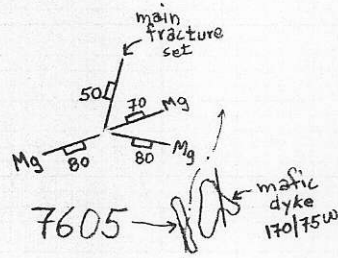 main
fracture
set
50
70
Mg
Mg
80
80
Mg
7605
mafic
dyke
170/75W